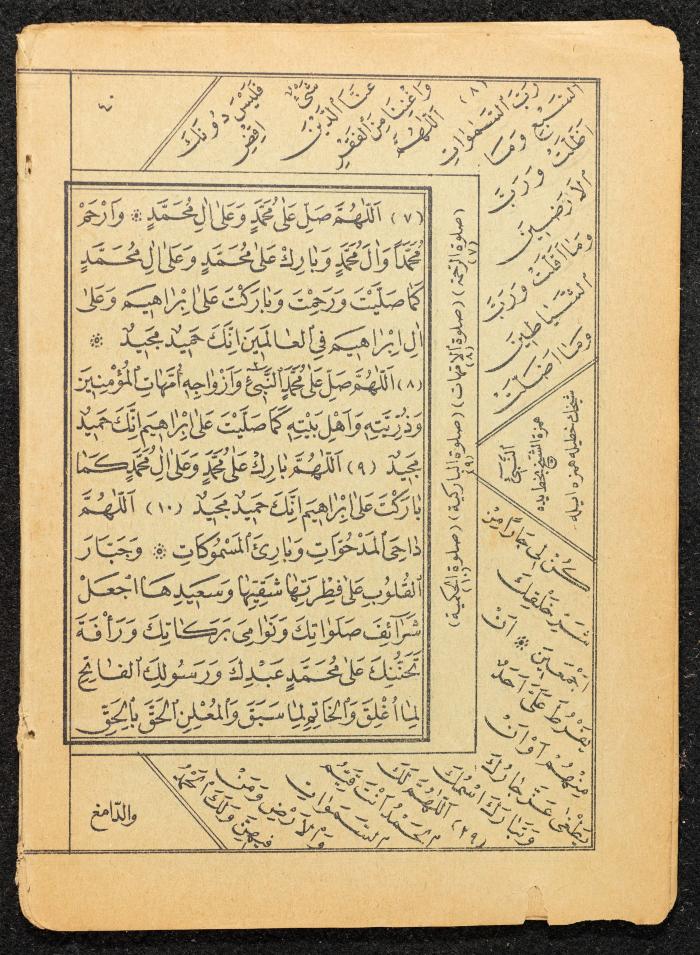 ٤٠
(٧) اَللّٰهُمَّ صَلِّ عَلٰى مُحَمَّدٍ وَعَلٰى اٰلِ مُحَمَّدٍ ❊ وَارْحَمْ
مُحَمَّدًا وَاٰلَ مُحَمَّدٍ وَبَارِكْ عَلٰى مُحَمَّدٍ وَعَلٰى اٰلِ مُحَمَّدٍ
كَمَا صَلَّيْتَ وَرَحِمْتَ وَبَارَكْتَ عَلٰى اِبْرَاهِيمَ وَعَلٰى
اٰلِ اِبْرَاهِيمَ فِى الْعَالَمِينَ اِنَّكَ حَمِيدٌ مَجِيدٌ ❊
(٨) اَللّٰهُمَّ صَلِّ عَلٰى مُحَمَّدٍ النَّبِىِّ وَاَزْوَاجِهِ اُمَّهَاتِ الْمُؤْمِنِينَ
وَذُرِّيَّتِهِ وَاَهْلِ بَيْتِهِ كَمَا صَلَّيْتَ عَلٰى اِبْرَاهِيمَ اِنَّكَ حَمِيدٌ
مَجِيدٌ (٩) اَللّٰهُمَّ بَارِكْ عَلٰى مُحَمَّدٍ وَعَلٰى اٰلِ مُحَمَّدٍ كَمَا
بَارَكْتَ عَلٰى اِبْرَاهِيمَ اِنَّكَ حَمِيدٌ مَجِيدٌ (١٠) اَللّٰهُمَّ
دَاحِىَ الْمَدْحُوَّاتِ وَبَارِئَ الْمَسْمُوكَاتِ ❊ وَجَبَّارَ
الْقُلُوبِ عَلٰى فِطْرَتِهَا شَقِيِّهَا وَسَعِيدِهَا اجْعَلْ
شَرَآئِفَ صَلَوَاتِكَ وَنَوَامِىَ بَرَكَاتِكَ وَرَأْفَةَ
تَحَنُّنِكَ عَلٰى مُحَمَّدٍ عَبْدِكَ وَرَسُولِكَ الْفَاتِحِ
لِمَا اُغْلِقَ وَالْخَاتِمِ لِمَا سَبَقَ وَالْمُعْلِنِ الْحَقَّ بِالْحَقِّ
(صلوة الرحمة) (صلوة الامهات) (صلوة الباركية) (صلوة الحكمية)
(٧) (٨) (٩) (١٠)
فَلَيْسَ دُونَكَ
شَىْءٌ اِقْضِ
عَنَّا الدَّيْنَ
وَاَغْنِنَا مِنَ الْفَقْرِ
(٨) اَللّٰهُمَّ
رَبَّ السَّمٰوَاتِ
السَّبْعِ وَمَا
اَظَلَّتْ وَرَبَّ
الْاَرَضِينَ
وَمَا اَقَلَّتْ وَرَبَّ
الشَّيَاطِينِ
وَمَا اَضَلَّتْ
النَّبِىِّ
كُنْ لِى جَارًا مِنْ
شَرِّ خَلْقِكَ
اَجْمَعِينَ ❊ اَنْ
يَفْرُطَ عَلَىَّ اَحَدٌ
مِنْهُمْ اَوْ اَنْ
يَطْغٰى عَزَّ جَارُكَ
وَتَبَارَكَ اسْمُكَ
(٢٩) اَللّٰهُمَّ لَكَ
الْحَمْدُ اَنْتَ قَيِّمُ
السَّمٰوَاتِ
وَالْاَرْضِ وَمَنْ
فِيهِنَّ وَلَكَ الْحَمْدُ
والدّامغ